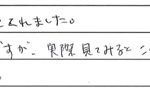 くれました。
ですが、実際見てみると こ